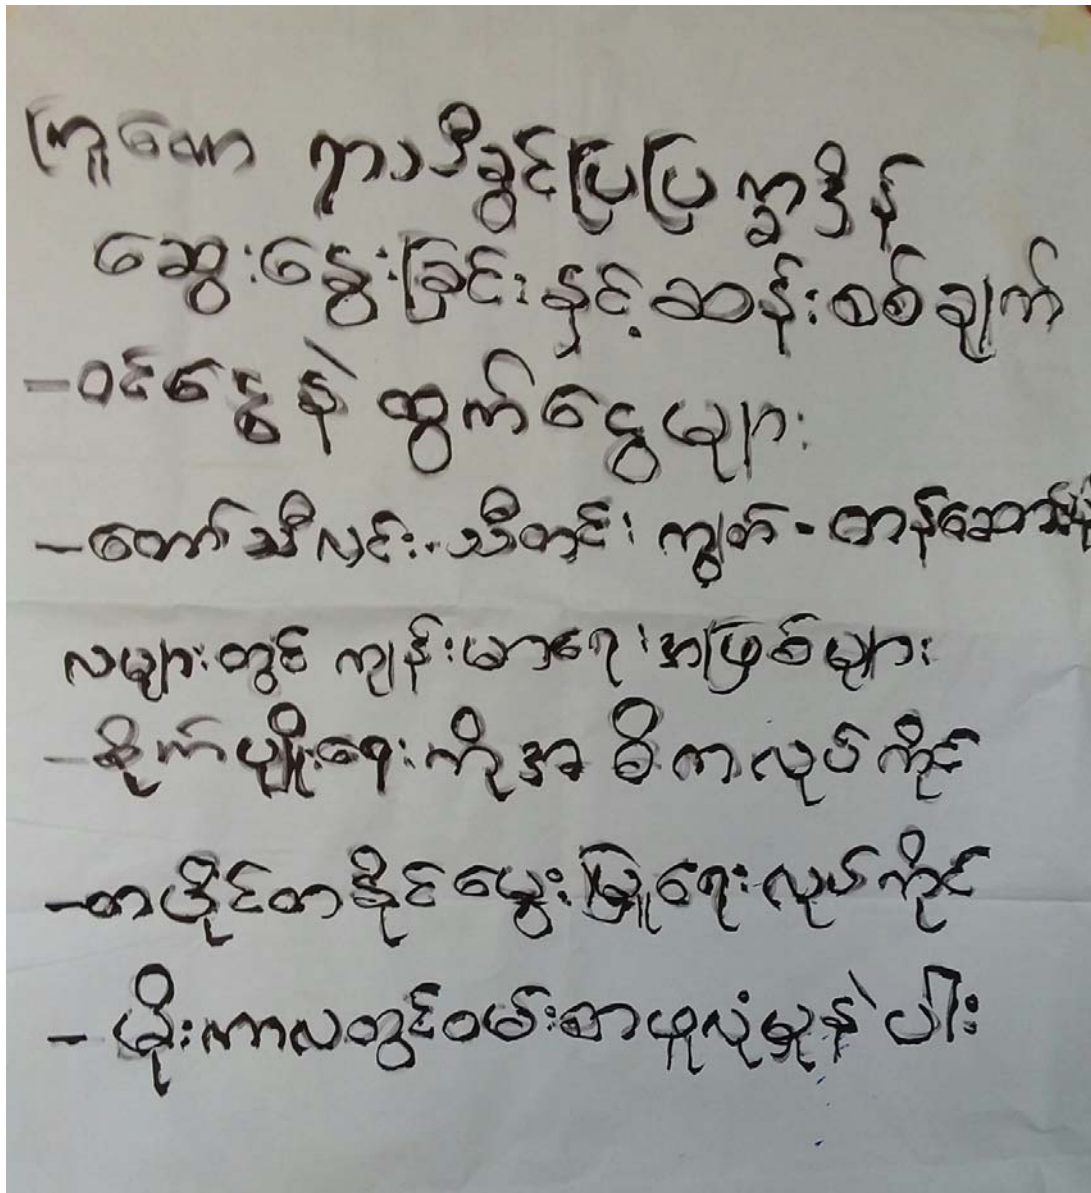 ကြူတော ရာသီခွင်ပြပြက္ခဒိန်
ဆွေးနွေးခြင်းနှင့်ဆန်းစစ်ချက်
-ဝင်ငွေနဲ့ ထွက်ငွေများ
-တော်သီလင်း-သီတင်းကျွတ်-တန်ဆောင်
လများတွင် ကျန်းမာရေးအဖြစ်များ
-စိုက်ပျိုးရေးကိုအဓိကလုပ်ကိုင်
-တပိုင်တနိုင်မွေးမြူရေးလုပ်ကိုင်
- မိုးကာလတွင်ဝမ်းစာဖူလုံမှုနဲပါး